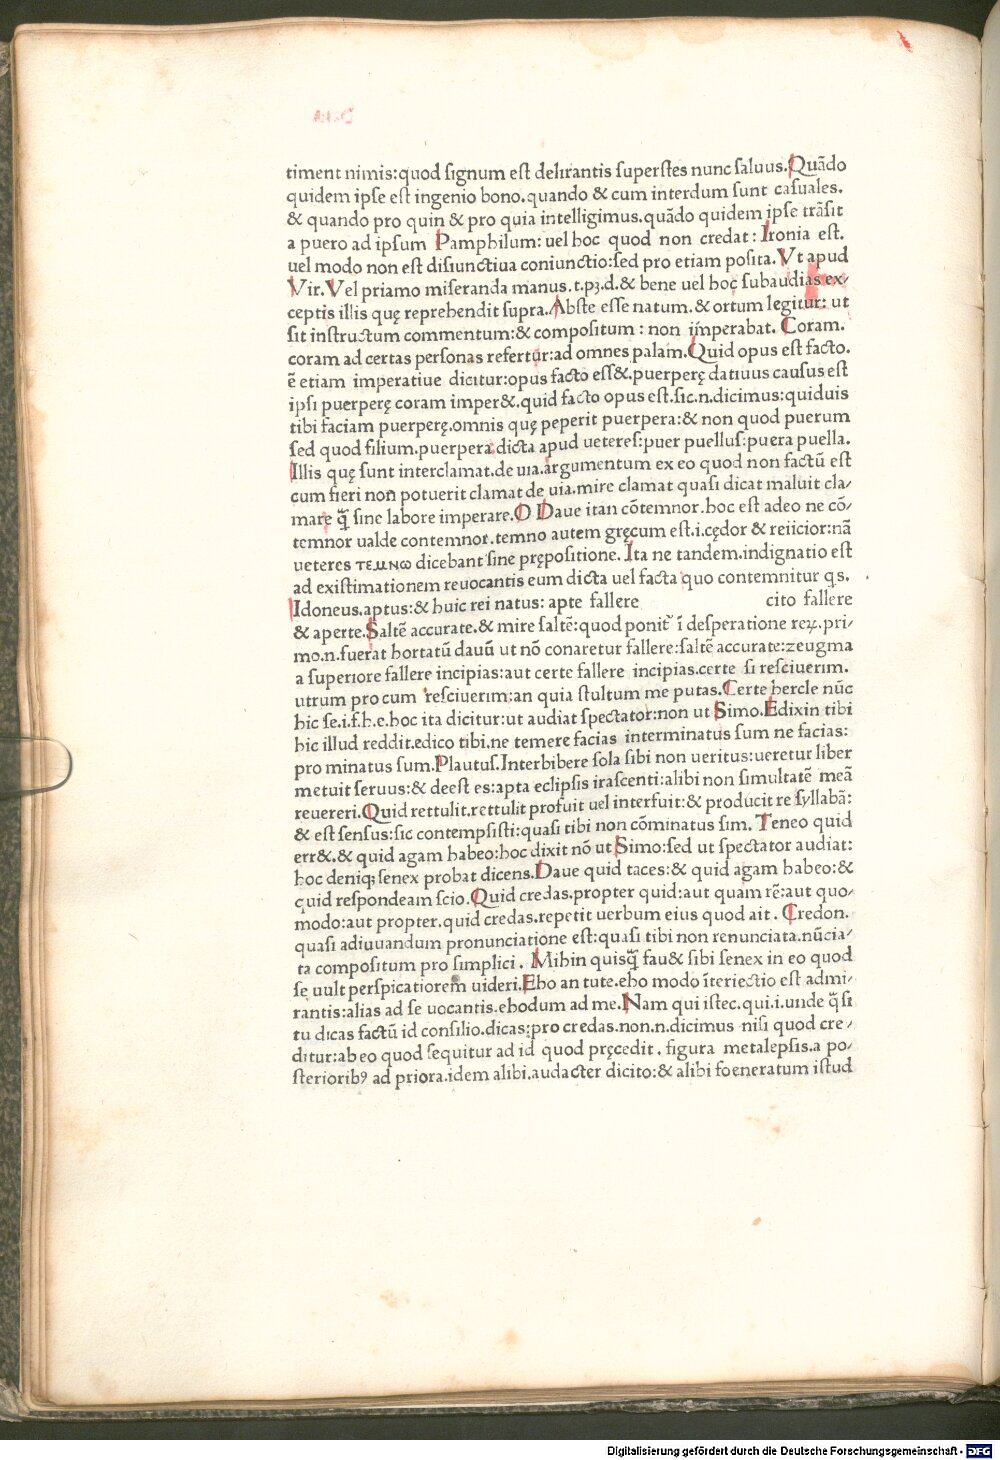 timent nimis:quod signum est delirantis superstes nunc saluus.Quādo
quidem ipse est ingenio bono.quando & cum interdum sunt casuales.
& quando pro quin & pro quia intelligimus.quādo quidem ipse trāsit
a puero ad ipsum Pamphilum: uel hoc quod non credat: Ironia est.
uel modo non est disiunctiua coniunctio:sed pro etiam posita. Vt apud
Vir.Vel priamo miseranda manus.t.pʒ.d.& bene uel hoc subaudias ex/
ceptis illis quę reprehendit supra.Abste esse natum.& ortum legitur: ut
sit instructum commentum:& compositum: non imperabat. Coram.
coram ad certas personas refertur:ad omnes palam.Quid opus est facto.
ē etiam imperatiue dicitur:opus facto ess&.puerperę datiuus causus est
ipsi puerperę coram imper&.quid facto opus est.sic.n.dicimus:quiduis
tibi faciam puerperę.omnis quę peperit puerpera:& non quod puerum
sed quod filium.puerpera dicta apud ueteres:puer puellus:puera puella.
Illis quę sunt interclamat.de uia.argumentum ex eo quod non factū est
cum fieri non potuerit clamat de uia.mire clamat quasi dicat maluit cla/
mare q̄ sine labore imperare.O Daue itan cōtemnor.hoc est adeo ne cō/
temnor ualde contemnor.temno autem gręcum est.i.cędor & reiicior:nā
ueteres τεμνω dicebant sine prępositione. Ita ne tandem.indignatio est
ad existimationem reuocantis eum dicta uel facta quo contemnitur q.s.
Idoneus.aptus:& huic rei natus: apte fallere cito fallere
& aperte.Saltē accurate.& mire saltē:quod ponit᷑ ī desperatione reꝝ.pri/
mo.n.fuerat hortatū dauū ut nō conaretur fallere:saltē accurate:zeugma
a superiore fallere incipias:aut certe fallere incipias.certe si resciuerim.
utrum pro cum resciuerim:an quia stultum me putas.Certe hercle nūc
hic se.i.f.h.e.hoc ita dicitur:ut audiat spectator:non ut Simo.Edixin tibi
hic illud reddit.edico tibi.ne temere facias interminatus sum ne facias:
pro minatus sum.Plautus.Interbibere sola sibi non ueritus:ueretur liber
metuit seruus:& deest es:apta eclipsis irascenti:alibi non simultatē meā
reuereri.Quid rettulit.rettulit profuit uel interfuit:& producit re syllabā:
& est sensus:sic contempsisti:quasi tibi non cōminatus sim. Teneo quid
err&.& quid agam habeo:hoc dixit nō ut Simo:sed ut spectator audiat:
hoc deniqꝫ senex probat dicens.Daue quid taces:& quid agam habeo:&
quid respondeam scio.Quid credas.propter quid:aut quam rē:aut quo/
modo:aut propter.quid credas.repetit uerbum eius quod ait. Credon.
quasi adiuuandum pronunciatione est:quasi tibi non renunciata.nūcia/
ta compositum pro simplici. Mihin quisq̄ fau& sibi senex in eo quod
se uult perspicatiorem uideri.Eho an tute.eho modo īteriectio est admi/
rantis:alias ad se uocantis.ehodum ad me.Nam qui istec.qui.i.unde q̄si
tu dicas factū id consilio.dicas:pro credas.non.n.dicimus nisi quod cre/
ditur:ab eo quod sequitur ad id quod pręcedit. figura metalepsis.a po/
sterioribꝰ ad priora.idem alibi.audacter dicito:& alibi foeneratum istud
Digitalisierung gefördert durch die Deutsche Forschungsgemeinschaft - DFG